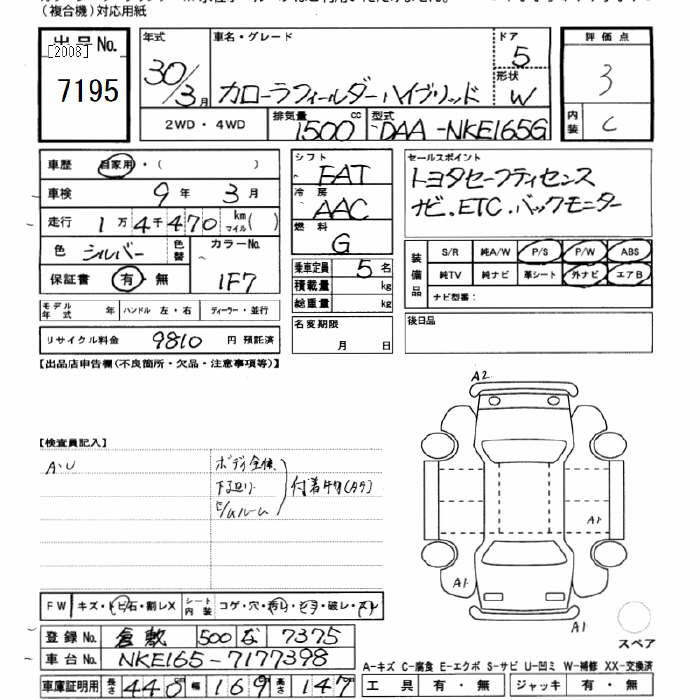 (複合機)対応用紙
出品No. [2008] 7195
年式 30/3月
車名・グレード カローラフィールダーハイブリッド
ドア 5
形状 W
2WD・4WD 排気量 1500cc 型式 DAA-NKE165G
評価点 3
内装 C
車歴 自家用・( )
車検 9年 3月
走行 1万4千470 km マイル( )
色 シルバー 色替 カラーNo. 1F7
保証書 有・無
モデル年式 年 ハンドル 左・右 ディーラー・並行
リサイクル料金 9810 円 預託済
シフト FAT
冷房 AAC
燃料 G
乗車定員 5名
積載量 kg
総重量 kg
名変期限 月 日
セールスポイント
トヨタセーフティセンス
ナビ.ETC.バックモニター
装備品 S/R 純A/W P/S P/W ABS
純TV 純ナビ 革シート 外ナビ エアB
ナビ型番:
後日品
【出品店申告欄(不良箇所・欠品・注意事項等)】
【検査員記入】
A・U
ボディ全体
下廻り 付着物
A2
A1
A1
A1
スペア
FW キズ・トビ石・割レX シート内装 コゲ・穴・汚レ・シミ・破レ・スレ
登録No. 倉敷 500 な 7375
車台No. NKE165-7177398
車庫証明用 長さ 440 幅 169 高さ 147
A-キズ C-腐食 E-エクボ S-サビ U-凹ミ W-補修 XX-交換済
工具 有・無 ジャッキ 有・無